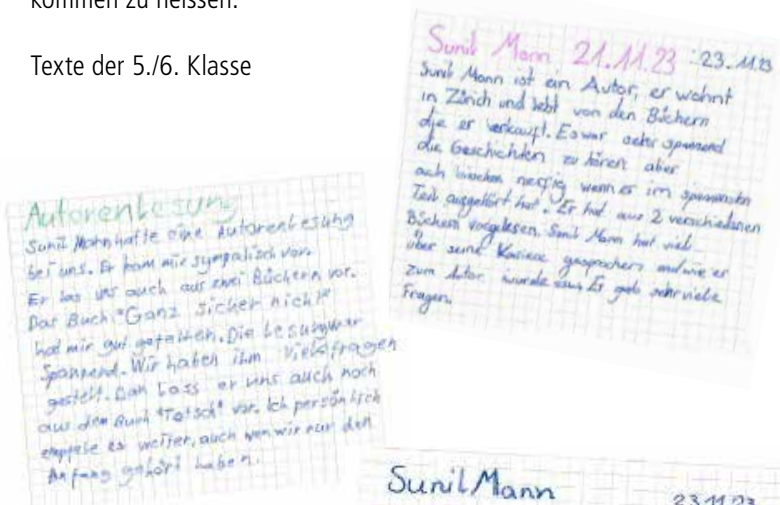 kommen zu heissen.
Texte der 5./6. Klasse
Sunil Mann 21.11.23 23.11.23
Sunil Mann ist ein Autor, er wohnt
in Zürich und lebt von den Büchern
die er verkauft. Es war sehr spannend
die Geschichten zu hören aber
auch nerfig wenn er im spannensten
Teil aufgehört hat. Er hat aus 2 verschiedenen
Büchern vorgelesen. Sunil Mann hat viel
über seine gesprochen und wie er
zum Autor wurde Es gab sehr viele
Fragen.
Autorenlesung
Sunil Mann hatte eine Autorenlesung
bei uns. Er kam mir sympatisch vor.
Er las uns auch aus zwei Büchern vor.
Das Buch "Ganz sicher nicht"
hat mir gut gefallen. Die Lesung war
Spannend. Wir haben ihm Viele fragen
gestellt. Dan Lass er uns auch noch
aus dem Buch "Totsch" vor. Ich persönlich
empfele es weiter, auch wen wir nur den
Anfang gehört haben.
Sunil Mann
23.11.23